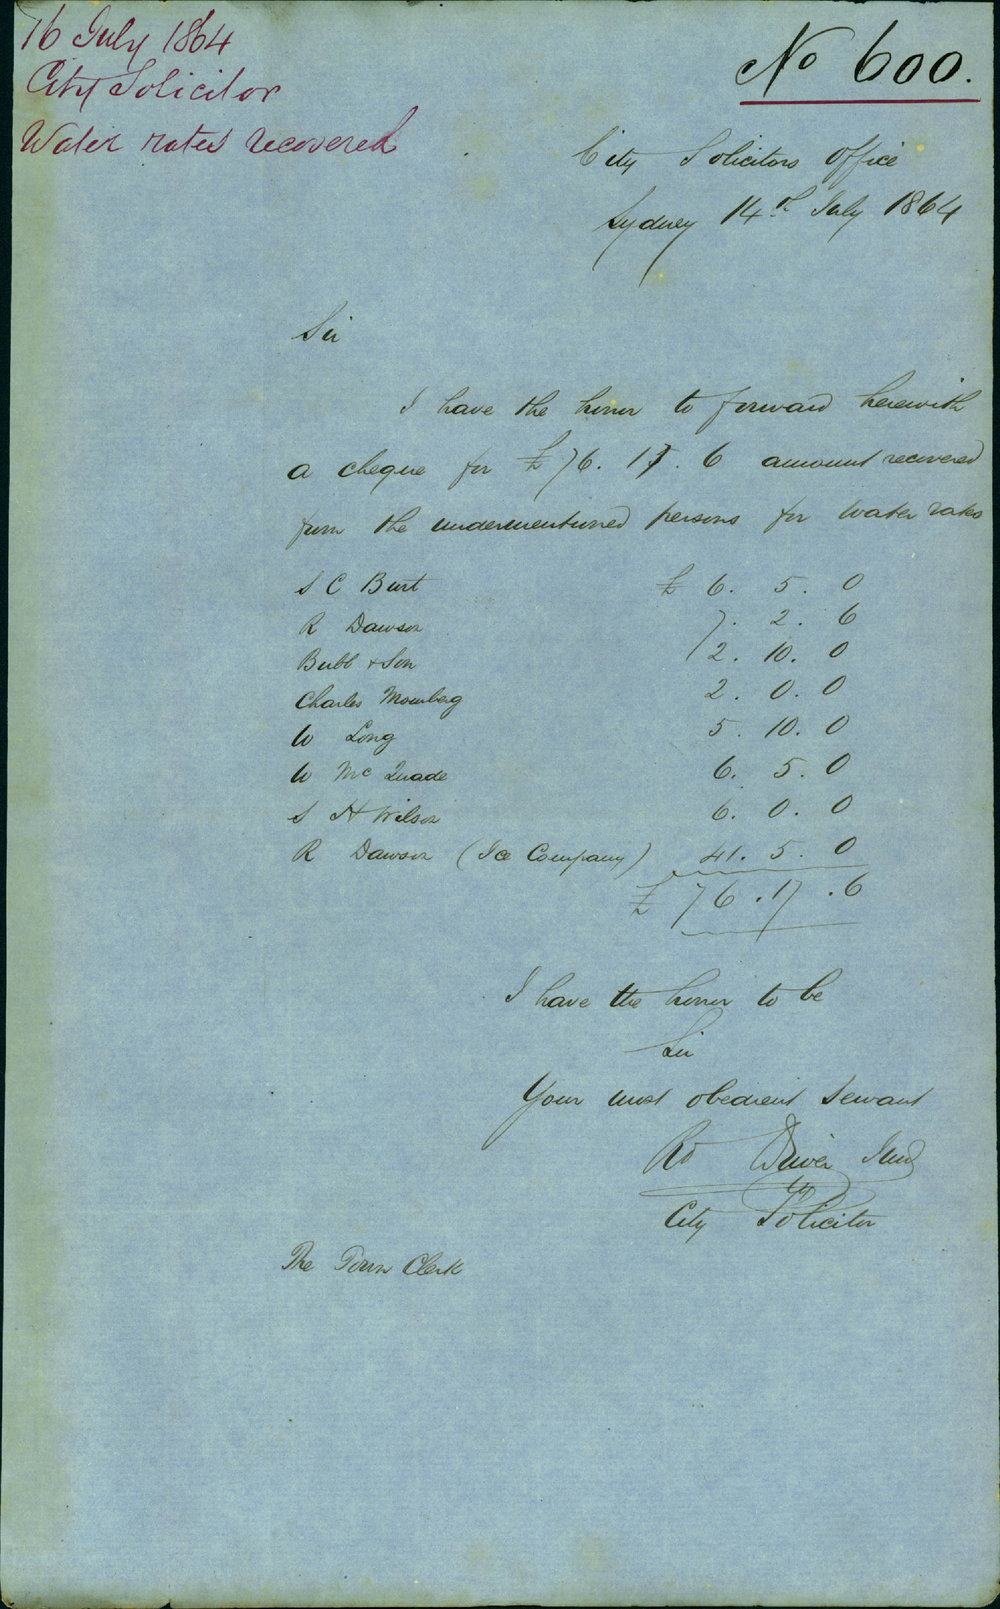 16 July 1864
City Solicitor
Water rates recovered
No 600.
City Solicitors Office
Sydney 14th July 1864
Sir
I have the honor to forward herewith
a cheque for £76. 17. 6 amount recovered
from the undermentioned persons for Water rates
S C Burt £ 6. 5. 0
R Dawson 7. 2. 6
Bubb & Son 2. 10. 0
Charles Momberg 2. 0. 0
W Long 5. 10. 0
W McQuade 6. 5. 0
S H Wilson 6. 0. 0
R Dawson (Ice Company) 41. 5. 0
£ 76. 17. 6
I have the honor to be
Sir
Your most obedient servant
Rd Driver Junr
City Solicitor
The Town Clerk